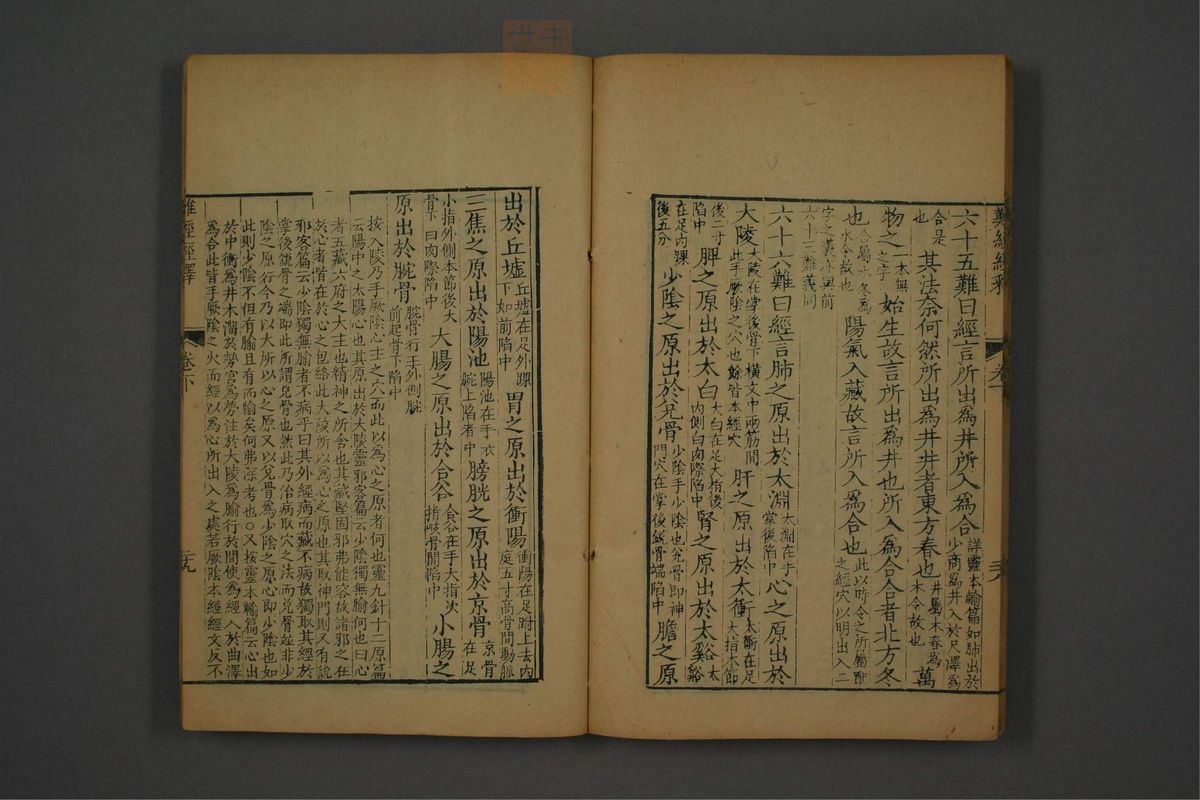 難經經釋 卷下 三八
六十五難曰經言所出爲井所入爲合詳靈本輸篇如肺出於少商爲井入於尺澤爲
合是也其法奈何然所出爲井井者東方春也井屬木春爲木令故也萬
物之一本無之字始生故言所出爲井也所入爲合合者北方冬
也合屬水冬爲水令故也陽氣入藏故言所入爲合也此以時令之所屬配之經穴以明出入二
字之義亦與前六十三難義同
六十六難曰經言肺之原出於太淵太淵在手掌後陷中心之原出於
大陵大陵在掌後骨下橫文中兩筋間此手厥陰之穴也餘皆本經穴肝之原出於太衝太衝在足大指本節
後二寸陷中脾之原出於太白大白在足大指後內側白肉際陷中腎之原出於太谿太谿
在足內踝後五分少陰之原出於兌骨少陰手少陰也兌骨即神門穴在掌後銳骨端陷中膽之原
出於丘墟丘墟在足外踝下如前陷中胃之原出於衝陽衝陽在足跗上去內庭五寸高骨間動脈
三焦之原出於陽池陽池在手表腕上陷者中膀胱之原出於京骨京骨在足
小指外側本節後大骨下白肉際陷中大腸之原出於合谷合谷在手大指次指岐骨間陷中小腸之
原出於腕骨腕骨在手外側腕前起骨下陷中
按大陵乃手厥陰心主之穴而此以爲心之原者何也靈九針十二原篇
云陽中之太陽心也其原出於大陵靈邪客篇云少陰獨無腧何也曰心
者五藏六府之大主也精神之所舍也其藏堅固邪弗能容故諸邪之在
於心者皆在於心之包絡此大陵所以爲心之原也其取神門則又有說
邪客篇云少陰獨無腧者不病乎曰其外經病而藏不病故獨取其經於
掌後銳骨之端即此所謂兌骨也然此乃治病取穴之法而兌骨並非少
陰之原行今乃以大陵所以心之原又以兌骨爲少陰之原心即少陰也如
此則少陰不但有腧且有兩腧矣何弗深考也○又按靈本輸篇云心出
於中衝爲井木溜於勞宮爲滎注於大陵爲腧行於間使爲經入於曲澤
爲合此皆手厥陰之穴而經以爲心所出入之處若厥陰本經經文反不
難經經釋 卷下 三九